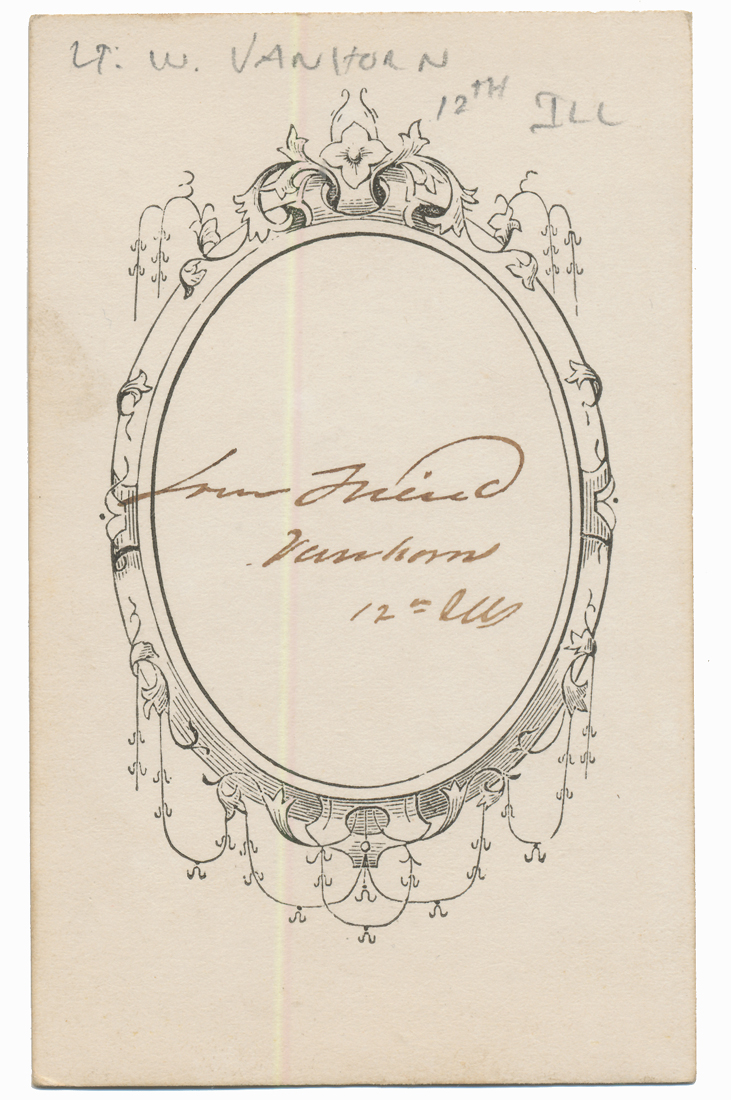 LT. W. VANHORN
12TH ILL
Your Friend
Vanhorn
12th Ills